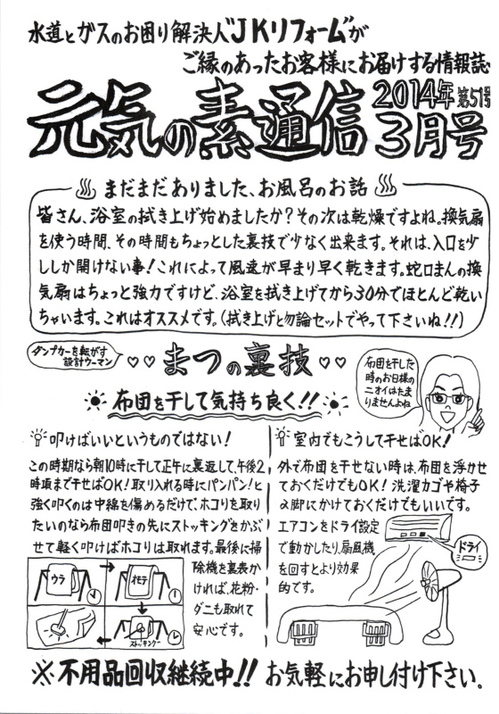 水道とガスのお困り解決人"JKリフォーム"が
ご縁のあったお客様にお届けする情報誌
元気の素通信 2014年 第51号
3月号
まだまだありました、お風呂のお話
皆さん、浴室の拭き上げ始めましたか?その次は乾燥ですよね。換気扇
を使う時間、その時間もちょっとした裏技で少なく出来ます。それは、入口を少
ししか開けない事!これによって風速が早まり早く乾きます。蛇口まんの換
気扇はちょっと強力ですけど、浴室を拭き上げてから30分でほとんど乾い
ちゃいます。これはオススメです。(拭き上げと勿論セットでやって下さいね!!)
ダンプカーを転がす
設計ウーマン
♡♡まつの裏技♡♡
布団を干した
時のお日様の
ニオイはたま
りませんよね
布団を干して気持ち良く!!
叩けばいいというものではない!
この時期なら朝10時に干して正午に裏返して、午後2
時頃まで干せばOK!取り入れる時にパンパン!と
強く叩くのは中綿を傷めるだけで、ホコリを取り
たいのなら布団叩きの先にストッキングをかぶ
せて軽く叩けばホコリは取れます。最後に掃
除機を裏表か
ければ、花粉・
ダニも取れて
安心です。
ウラ
オモテ
ストッキング
室内でもこうして干せばOK!
外で布団を干せない時は、布団を浮かせ
ておくだけでもOK!洗濯カゴや椅子
2脚にかけておくだけでもいいです。
エアコンをドライ設定
で動かしたり、扇風機
を回すとより効果
的です。
ドライ
※不用品回収継続中!!お気軽にお申し付け下さい。